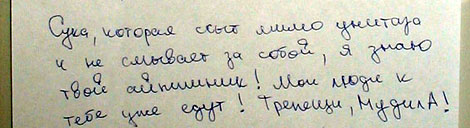 Сука, которая ссыт мимо унитаза
и не смывает за собой, я знаю
твой айпишник! Мои люди к
тебе уже едут! Трепещи, МудилА!